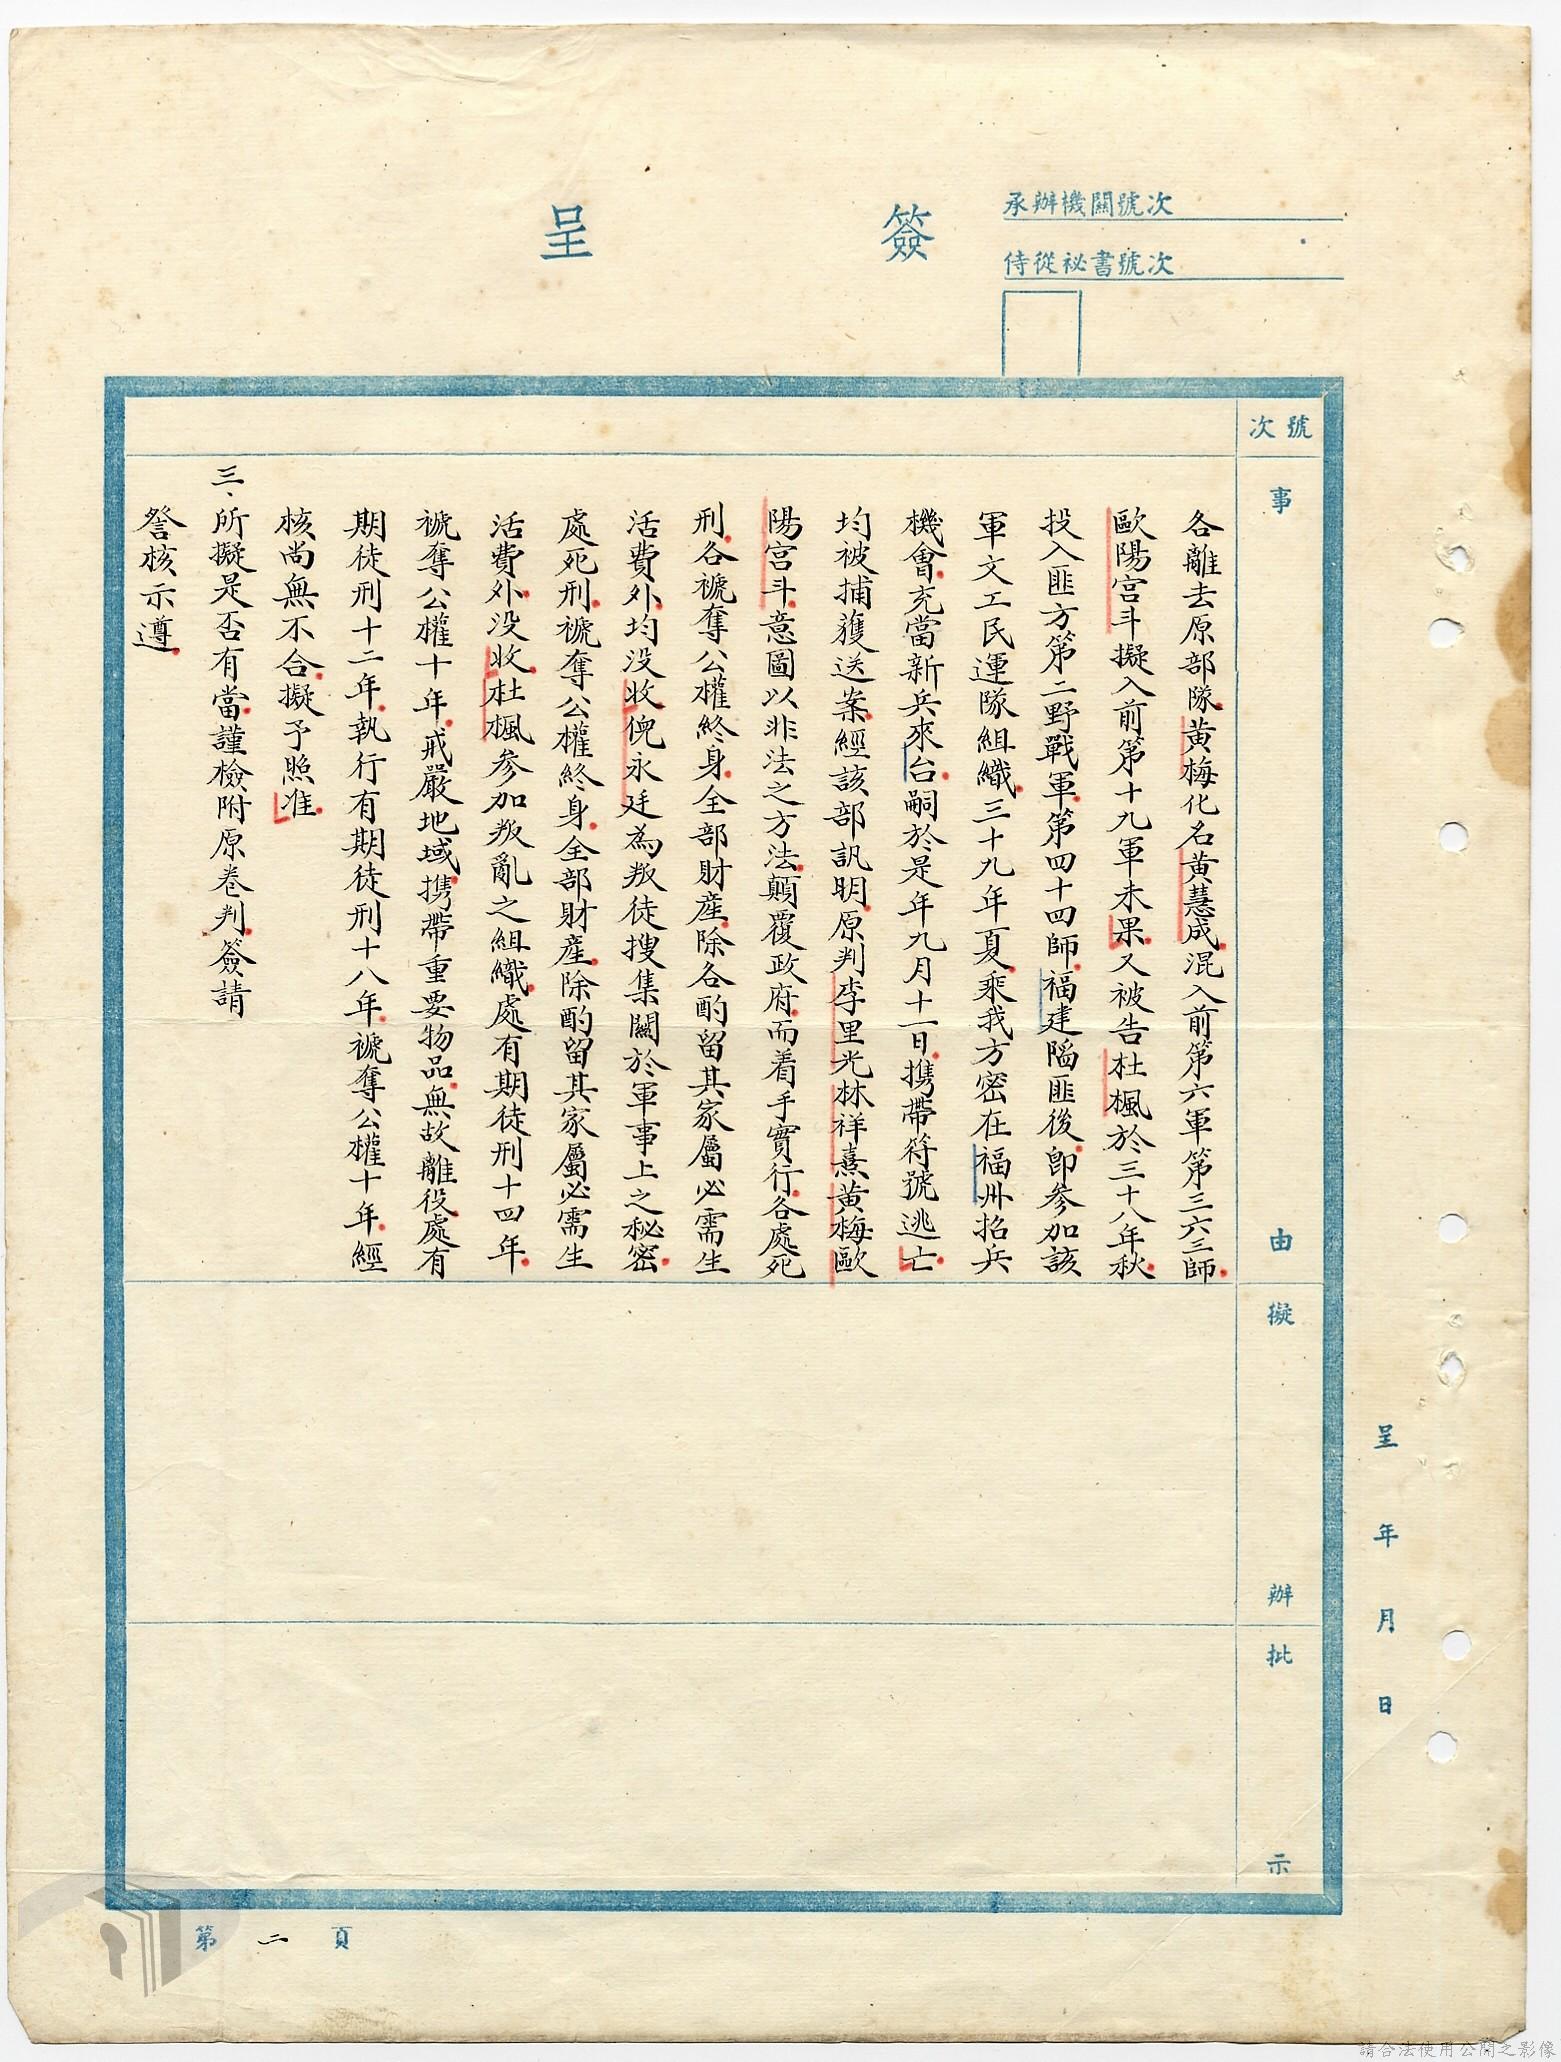 簽呈
承辦機關號次
侍從祕書號次
號次
事由
擬辦
批示
呈 年 月 日
各離去原部隊黃梅化名黃慧成混入前第六軍第三六三師
歐陽宮斗擬入前第十九軍未果又被告杜楓於三十八年秋
投入匪方第二野戰軍第四十四師福建陷匪後即參加該
軍文工民運隊組織三十九年夏乘我方密在福州招兵
機會充當新兵來台嗣於是年九月十一日携帶符號逃亡
均被捕獲送案經該部訊明原判李里光林祥熹黃梅歐
陽宮斗意圖以非法之方法顛覆政府而着手實行各處死
刑各褫奪公權終身全部財產除各酌留其家屬必需生
活費外均没收倪永廷為叛徒搜集關於軍事上之秘密
處死刑褫奪公權終身全部財產除酌留其家屬必需生
活費外没收杜楓參加叛亂之組織處有期徒刑十四年
褫奪公權十年戒嚴地域携帶重要物品無故離役處有
期徒刑十二年執行有期徒刑十八年褫奪公權十年經
核尚無不合擬予照准
三、所擬是否有當謹檢附原卷判簽請
詧核示遵
第二頁
請合法使用公開之影像